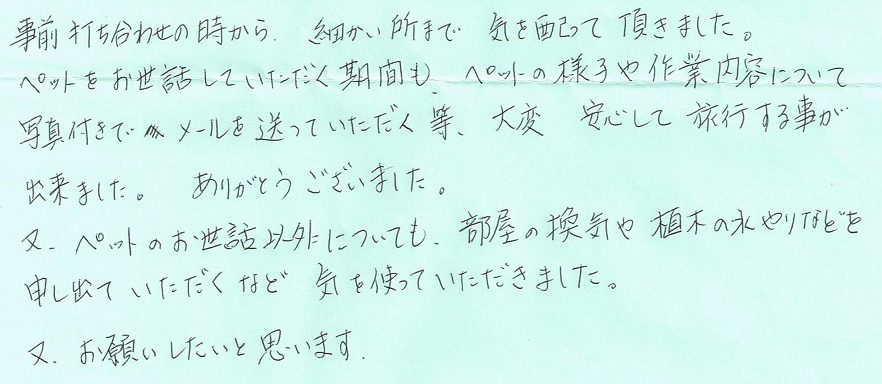 事前打ち合わせの時から、細かい所まで 気を配って 頂きました。
ペットをお世話していただく期間も、ペットの様子や作業内容について
写真付きで メールを送っていただく等、大変 安心して 旅行する事が
出来ました。 ありがとうございました。
又、ペットのお世話以外についても、部屋の換気や 植木の水やりなどを
申し出て いただくなど 気を使っていただきました。
又、お願いしたいと思います.